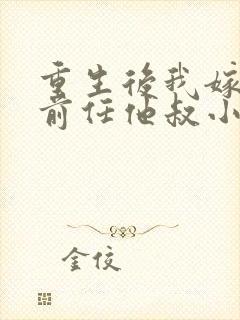 重生後我嫁
前任他叔小
金佼